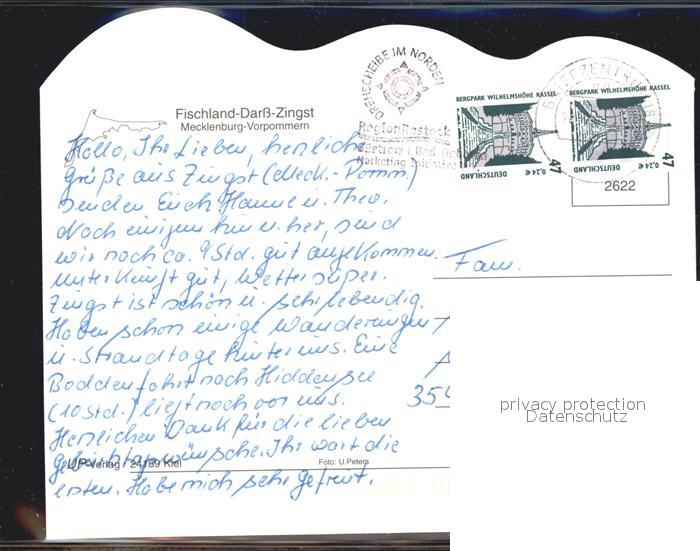 DREHSCHEIBE IM NORDEN
BERGPARK WILHELMSHÖHE KASSEL
BERGPARK WILHELMSHÖHE KASSEL
BRIEFZENTRUM 18
Fischland-Darß-Zingst
Mecklenburg-Vorpommern
RegionRostock
47
0,24 €
DEUTSCHLAND
47
0,24 €
DEUTSCHLAND
2622
Hallo, Ihr Lieben, herzliche
Grüße aus Zingst (Meck.-Pomm.)
senden Euch Hanne u. Theo.
Nach einigem hin u. her, sind
wir nach ca. 9 Std. gut angekommen.
Unterkunft gut, Wetter super.
Zingst ist schön u. sehr lebendig.
Haben schon einige Wanderungen
u. Strandtage hinter uns. Eine
Boddenfahrt nach Hiddensee
(10 Std.) liegt noch vor uns.
Herzlichen Dank für die lieben
Geburtstagswünsche. Ihr wart die
ersten. Habe mich sehr gefreut.
Fam.
35
privacy protection
Datenschutz
UP-Verlag 24159 Kiel
Foto: U.Peters